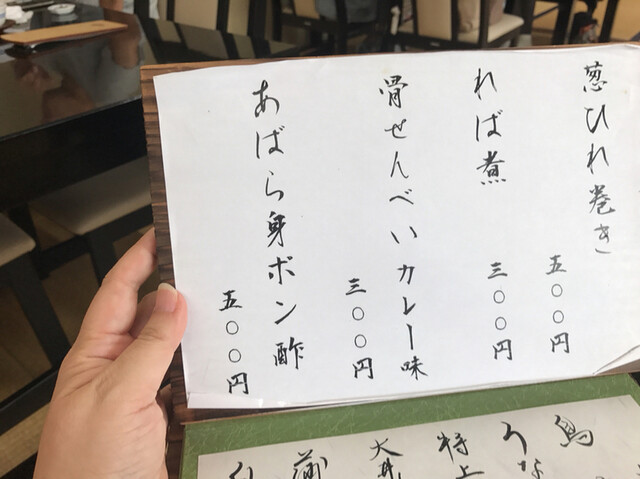 葱ひれ巻き
五〇〇円
れば煮
三〇〇円
骨せんべいカレー味
三〇〇円
あばら身ポン酢
五〇〇円
うな
特上
大丼
蒲